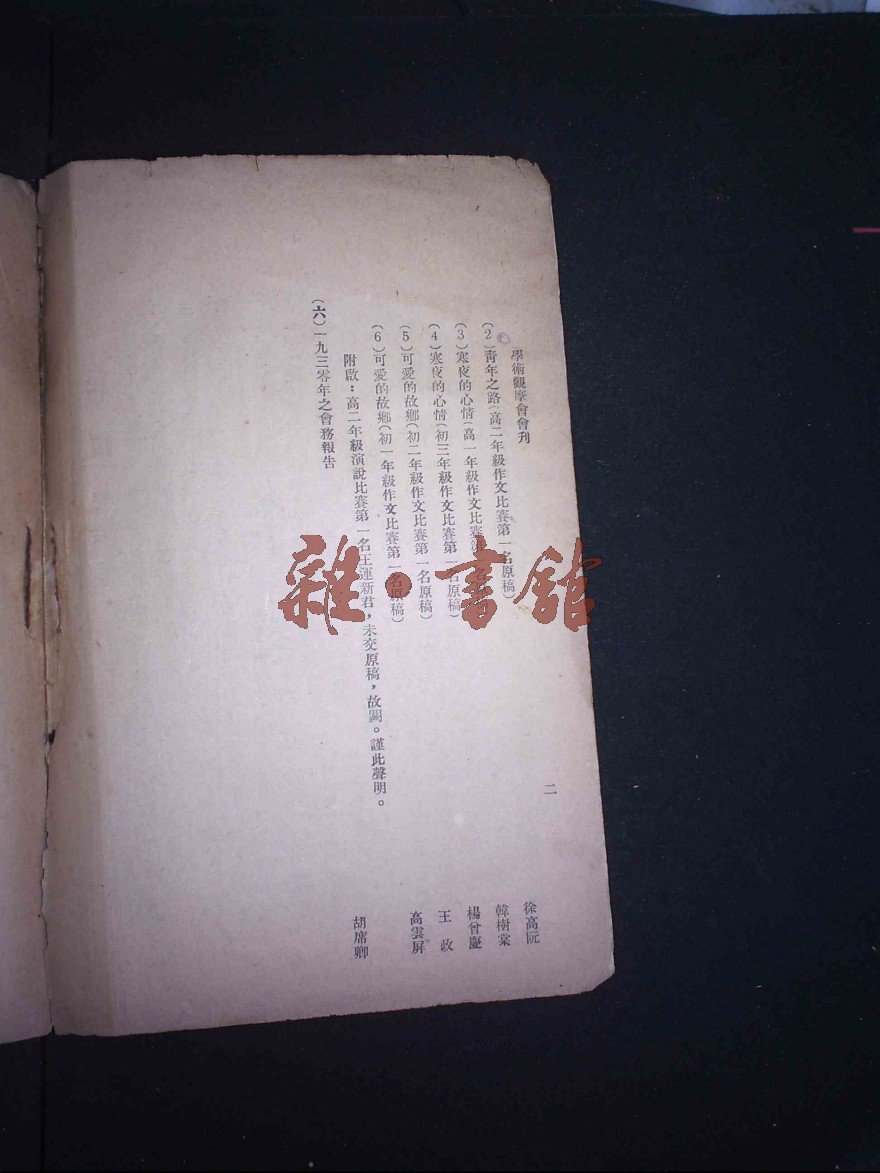 學術觀摩會會刊
二
(2)靑年之路(高二年級作文比賽第一名原稿)
徐高阮
(3)寒夜的心情(高一年級作文比賽第一名原稿)
韓樹棠
(4)寒夜的心情(初三年級作文比賽第一名原稿)
楊曾慶
(5)可愛的故鄕(初二年級作文比賽第一名原稿)
王政
(6)可愛的故鄕(初一年級作文比賽第一名原稿)
高雲屏
附啟:高二年級演說比賽第一名王運新君,未交原稿,故闕。謹此聲明。
(六)一九三零年之會務報告
胡席卿
雜·書館